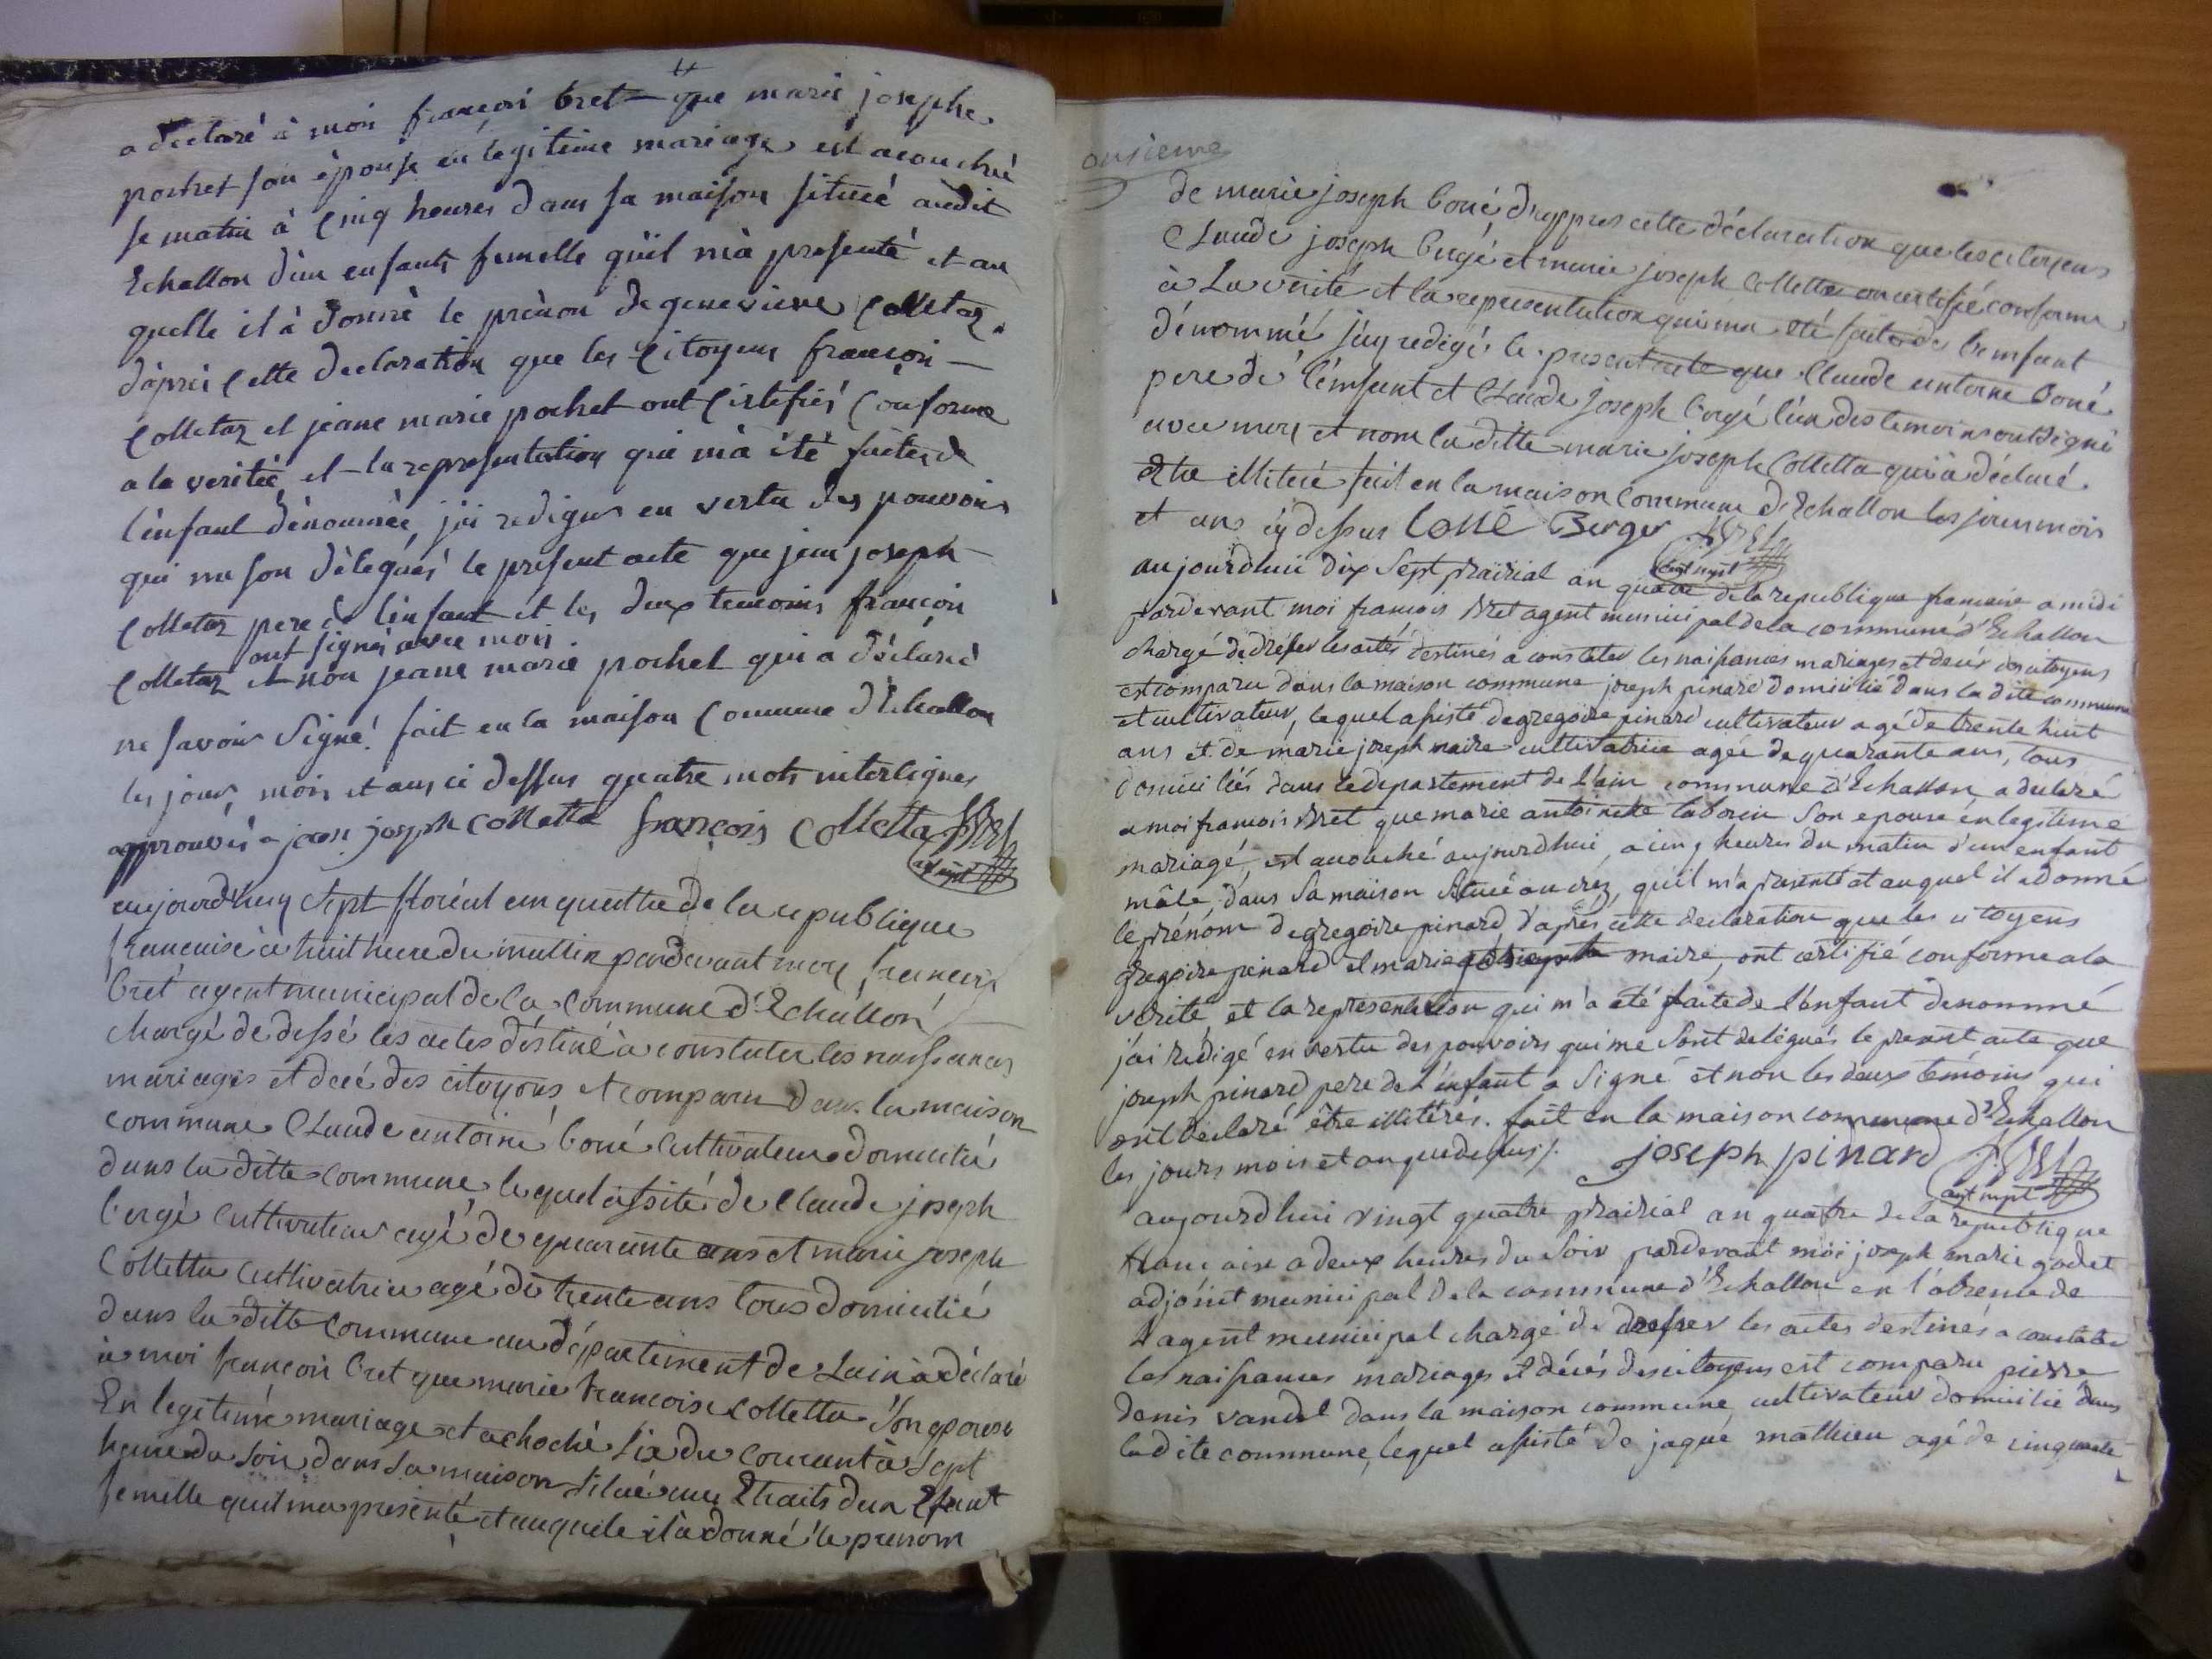 a declaré à moi françois bret que marie josephe
pochet son épouse en legitime mariage est acouchéé
se matin à cinq heures dans sa maison situeé audit
Echallon d'un enfants femelle qu'il m'à presenté et au
quelle il à donné le prénon de genevieve Colletaz
d'aprés cette declaration que les Citoyens françois
Colletaz et jeane marie pochet ont Certifiés Conforme
a la veritéé et la representation qui m'à été faites de
l'enfant dénomméé, j'ai redigus en vertu des pouvoirs
qui me son délegués le present acte que jean joseph
Colletaz pere de l'enfant et les deux temoins françois
ont signés avec moi
Colletaz et non jeane marie pochet qui a déclaréé
ne savoir Signé! fait en la maison Comune d'Echallon
les jour, mois et ans ci dessus quatre mots interlignes
approuvés a jean joseph colletta françois Colletta Bret
agt mpl
aujourd'huy Sept floréal an quattre de la republique
francaise à huit heure du mattin pardevant moy francois
bret agent municipal de la Commune d'Echallon
chargé de dessé les actes déstiné à constater les naissances
mariages et decé des citoyens et comparu dans la maison
commune Claude antoine boné Cultivateur domicilié
dans la ditte commune lequel assité de Claude joseph
bergé Cultivateur agé de quarente ans et marie joseph
Colletta Cultivatrice agé de trente ans tous domicilié
dans la ditte commune au département de Lain à déclaré
à moi francois bret que marie francoise Colletta Son epouse
En legitime mariage et achoché six du courant à Sept
heure du soir dans sa maison situé aux Etraits d'un Efant
femelle quil ma presenté et auquele il à donné le prenom
onsieme
de marie joseph boné d'appres cette déclaration que les citoyens
Claude joseph bergé et marie joseph Colletta on certifié conforme
à La verité et la representation qui ma été faite de l'emfant
dénommé j'ay redigé le present acte que Claude antoine boné
pere de l'émfant et Claude joseph bergé l'un des temoins ont Signé
avec moy et nom la ditte marie joseph Colletta qui à déclaré
Etre illiteré fait en la maison commune d'Echallon les jour mois
et ans cy dessus boné Berger Bret
agt mpl
aujourdhui dix Sept prairial an quatre de la republique francaise a midi
pardevant moi francois Bret agent municipal de la commune d'Echallon
chargé de dresser les actes destinés a constater les naissances mariages et decés des citoyens
est comparu dans la maison commune joseph pinard domicilié dans la dite commune
et cultivateur, lequel assisté de gregoire pinard cultivateur agé de trente huit
ans et de marie joseph maire cultivatrice agée de quarante ans, tous
domiciliés dans le departement de l'ain commune d'Echallon, a declaré
a moi francois Bret que marie antoinette taborin Son epouse en legitime
mariagé, est accouché aujourdhui, a cinq heures du matin d'un enfant
mâle, dans Sa maison Situé au crez, qu'il m'a presenté et auquel il a donné
le prénom de gregoire pinard d'apres cette declaration que les citoyens
gregoire pinard et marie josephte maire, ont certifié conforme a la
verité et la representation qui m'a eté faite de l'enfant denommé
j'ai redigé en vertu des pouvoirs qui me Sont delegués le present acte que
joseph pinard pere de l'enfant a Signé et non les deux temoins qui
ont declaré être illitérés. fait en la maison commune d'Echallon
les jours mois et an que dessus /. joseph pinard Bret
agt mpl
aujourdhui vingt quatre prairial an quatre de la republique
francaise a deux heures du Soir pardevant moi joseph marie godet
adjoint municipal de la commune d'Echallon en l'absence de
l'agent municipal chargé de dresser les actes destinés a constater
les naissances mariages et décés des citoyens est comparu pierre
denis vandel dans la maison commune, cultivateur domicilié dans
ladite commune, lequel assisté de jaque mathieu agé de cinquante